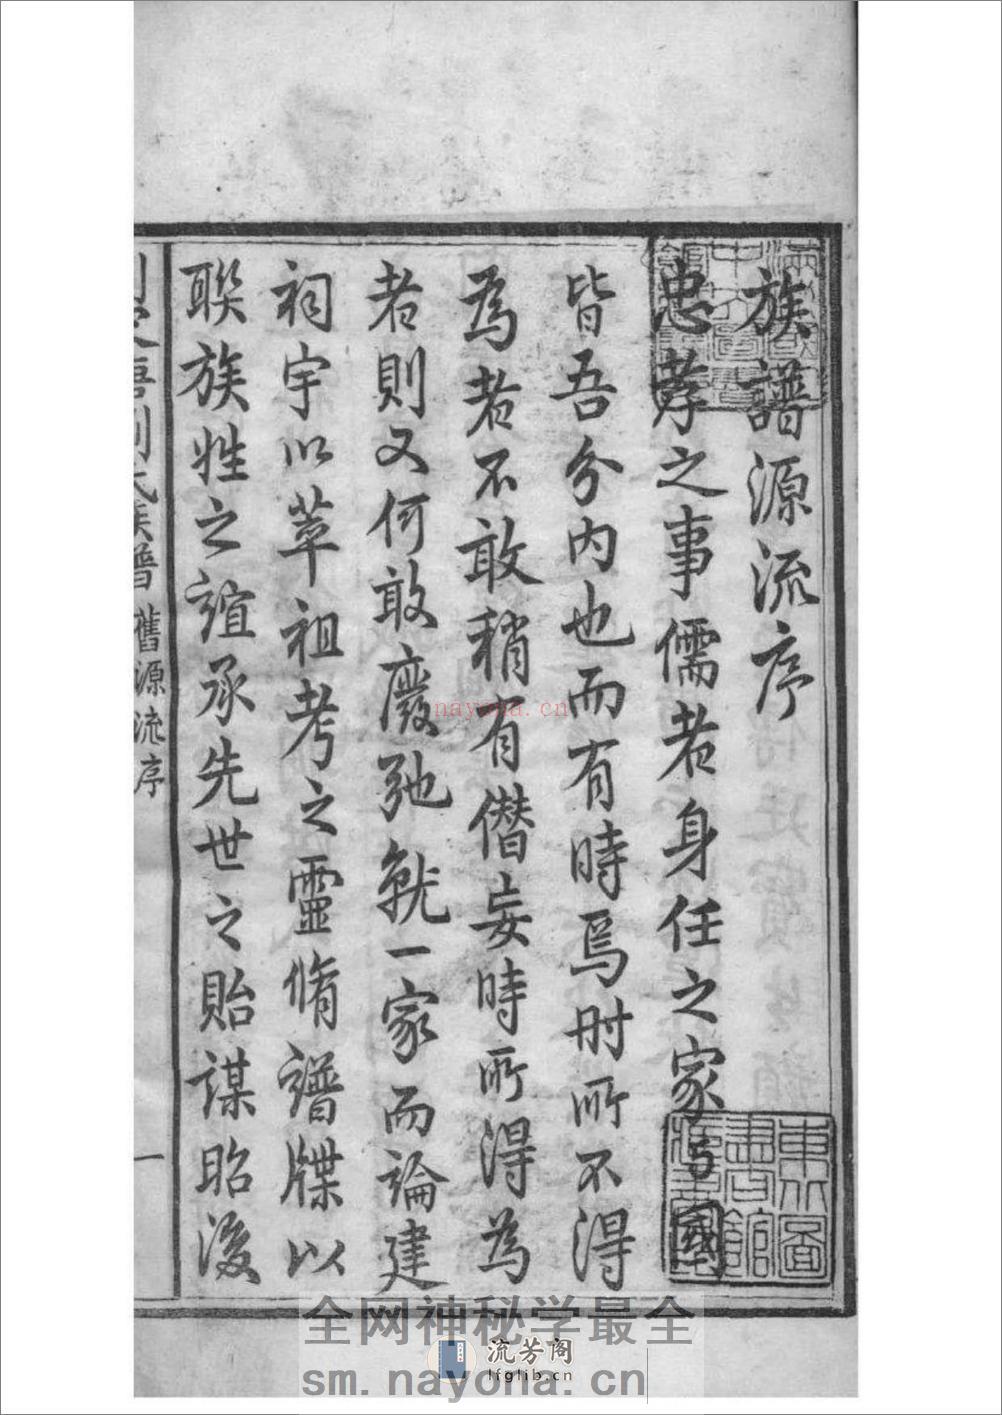 族譜源流序
忠孝之事儒者身任之家与國
皆吾分内也而有時焉时所不得
為者不敢稍有僭妄時所得為
者則又何敢廢弛就一家而論建
祠宇以萃祖考之靈脩譜牒以
聯族姓之誼承先世之貽謀昭後
劉氏族譜 舊源流序
一
東北圖書館
nayona.cn
全网神秘学最全
流芳阁
lfglib.cn
sm.nayona.cn